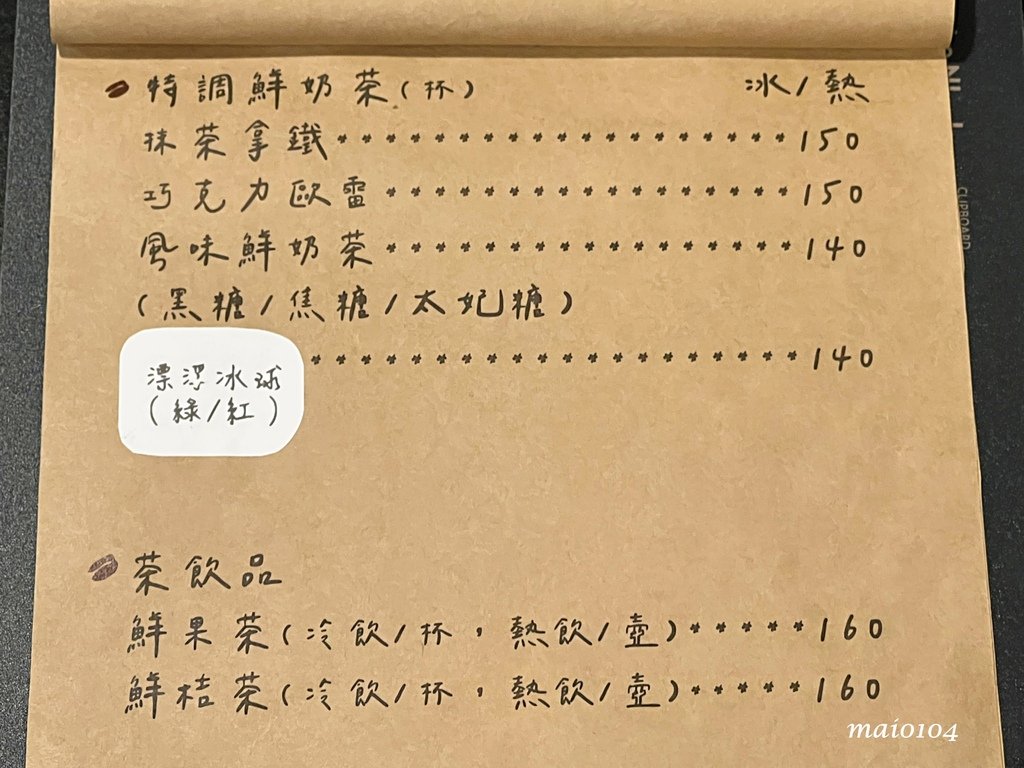 特調鮮奶茶(杯) 冰/熱
抹茶拿鐵 150
巧克力歐雷 150
風味鮮奶茶 140
(黑糖/焦糖/太妃糖)
漂浮冰球 140
(綠/紅)
茶飲品
鮮果茶(冷飲/杯，熱飲/壺) 160
鮮桔茶(冷飲/杯，熱飲/壺) 160
CLIPBOARD
maio104